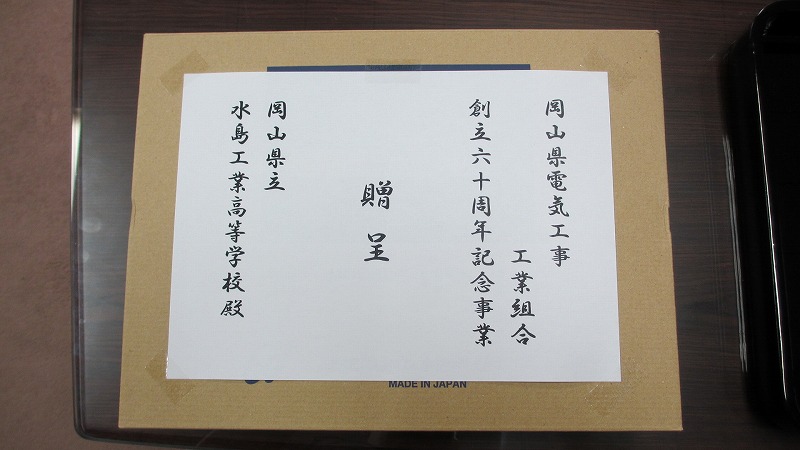 岡山県電気工事
工業組合
創立六十周年記念事業
贈呈
岡山県立
水島工業高等学校殿
MADE IN JAPAN